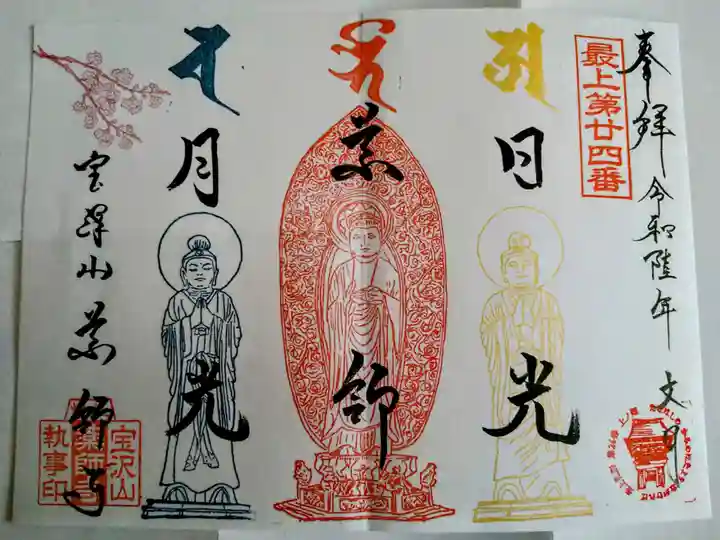 奉拝 令和陸年 文月
最上第廿四番
日光
薬師
月光
宝澤山 薬師寺
宝沢山
薬師寺
執事印